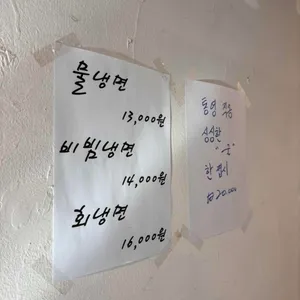 물냉면
13,000원
비빔냉면
14,000원
회냉면
16,000원
통영 직송
싱싱한
"굴"
한접시
₩20,000